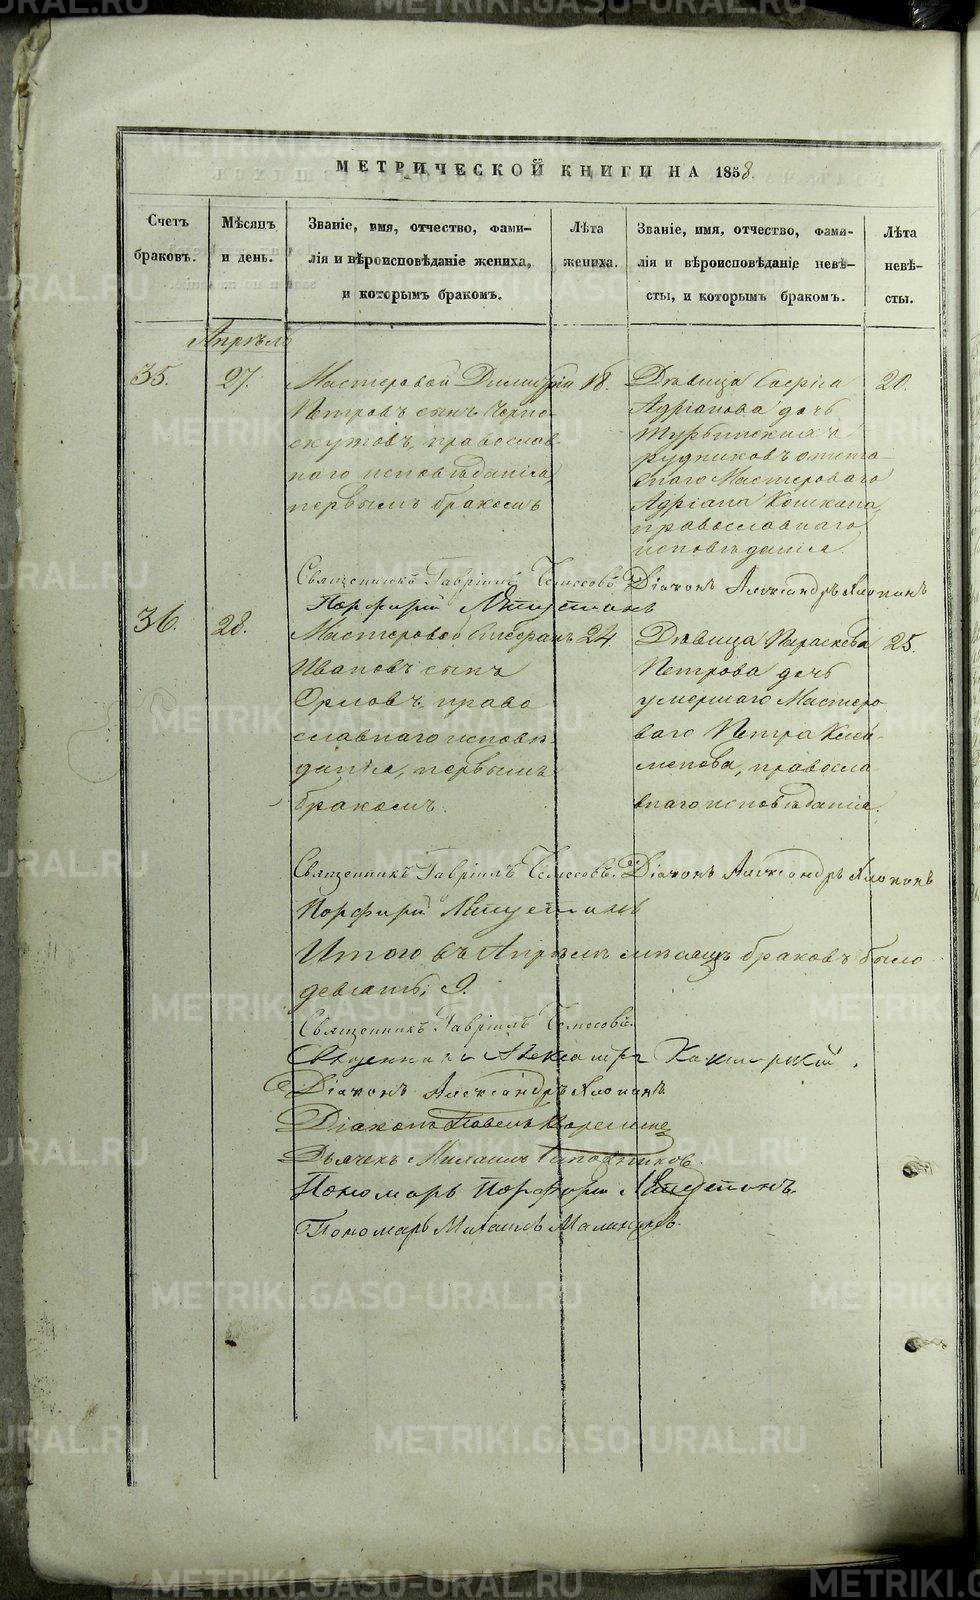 МЕТРИЧЕСКОЙ КНИГИ НА 1858.
Счетъ браковъ.
Мѣсяцъ и день.
Званіе, имя, отчество, фами-
лія и вѣроисповѣданіе жениха,
и которымъ бракомъ.
Лѣта жениха.
Званіе, имя, отчество, фами-
лія и вѣроисповѣданіе невѣ-
сты, и которымъ бракомъ.
Лѣта невѣ-
сты.
Апрѣль
35.
27.
Мастеровой Димитрій
Петровъ сынъ Черно-
скутовъ, православ-
наго исповѣданія,
первымъ бракомъ
18.
Дѣвица Софія
Адріанова дочь
Турьинскихъ
рудниковъ отста-
внаго Мастероваго
Адріана Кошкина,
православнаго
исповѣданія.
20.
Священникъ Гавріилъ Діаконъ Александръ
Порфирій
36.
28.
Мастеровой Стефанъ
Ивановъ сынъ
Орловъ, право
славнаго исповѣ-
данія, первымъ
бракомъ.
24.
Дѣвица Параскева
Петрова дочь
умершаго Мастеро
ваго Петра
православ
внаго исповѣданія.
25.
Священникъ Гавріилъ Діаконъ Александръ
Порфирій
Итого въ Апрѣлѣ мѣсяцѣ браковъ было
девять; 9.
Священникъ Гавріилъ
Священникъ Александръ
Діаконъ Александръ
Діаконъ Павелъ
Дьячекъ Михаилъ Сапожниковъ.
Пономарь Порфирій
Пономарь Михаилъ
METRIKI.GASO-URAL.RU